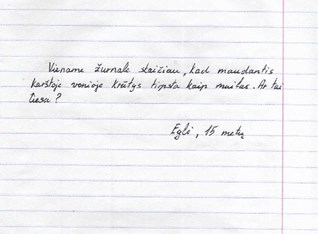 Viename žurnale skaičiau, kad maudantis
karštoje vonioje krūtys tirpsta kaip muilas. Ar tai
tiesa?
Eglė, 15 metų